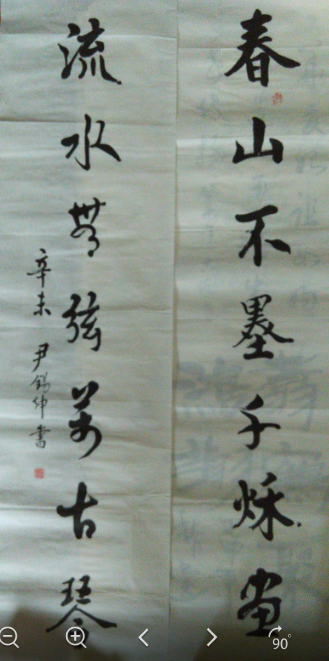 春山不墨千秋畫
流水無弦萬古琴
辛未 尹錫仲書
90°